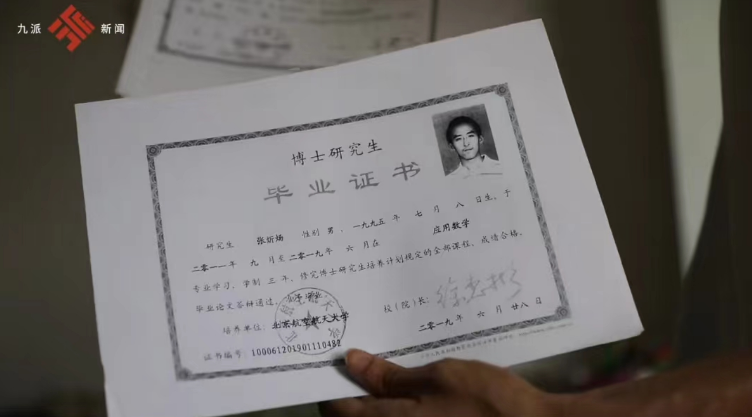 九派 新闻
博士研究生
毕业证书
研究生 张炘炀 性别 男，一九九五年 七月 八日生，于
二〇一一年 九月至二〇一九年 六月在 应用数学
专业学习，学制 三 年，修完博士研究生培养计划规定的全部课程，成绩合格，
毕业论文答辩通过，
培养单位：北京航空航天大学
校（院）长：
证书编号：100061201901110482
二〇一九年 六月 廿八日